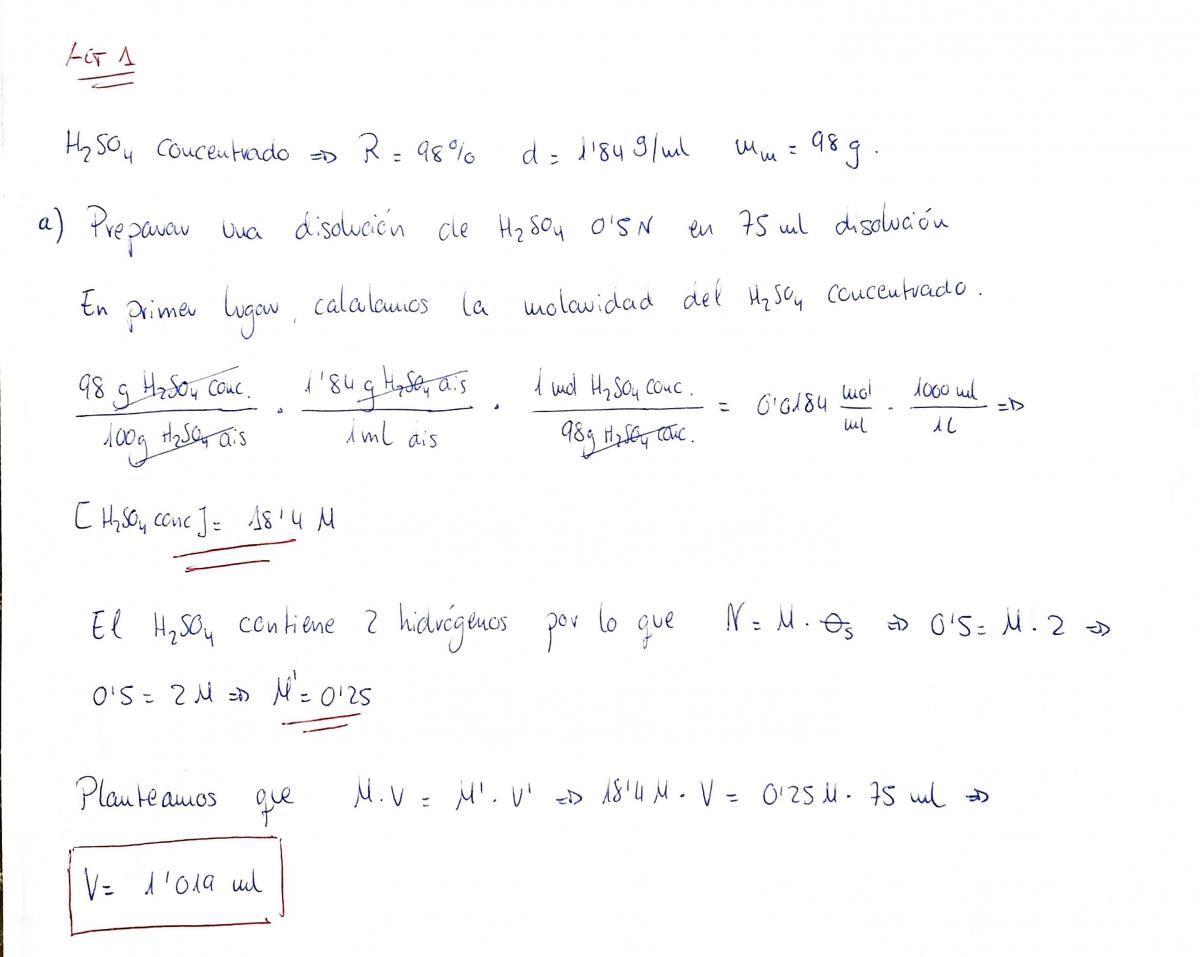 Act 1
H₂SO₄ concentrado ⇒ R = 98% d = 1'84 g/ml mm = 98 g.
a) Preparar una disolución de H₂SO₄ 0'5 N en 75 ml disolución
En primer lugar, calculamos la molaridad del H₂SO₄ concentrado.
98 g H₂SO₄ conc. / 100g H₂SO₄ dis · 1'84 g H₂SO₄ dis / 1 ml dis · 1 mol H₂SO₄ conc. / 98g H₂SO₄ conc. = 0'0184 mol/ml · 1000 ml / 1L ⇒
[H₂SO₄ conc] = 18'4 M
El H₂SO₄ contiene 2 hidrógenos por lo que N = M · ⇒ 0'5 = M · 2 ⇒
0'5 = 2 M ⇒ M' = 0'25
Planteamos que M · V = M' · V' ⇒ 18'4 M · V = 0'25 M · 75 ml ⇒
V = 1'019 ml